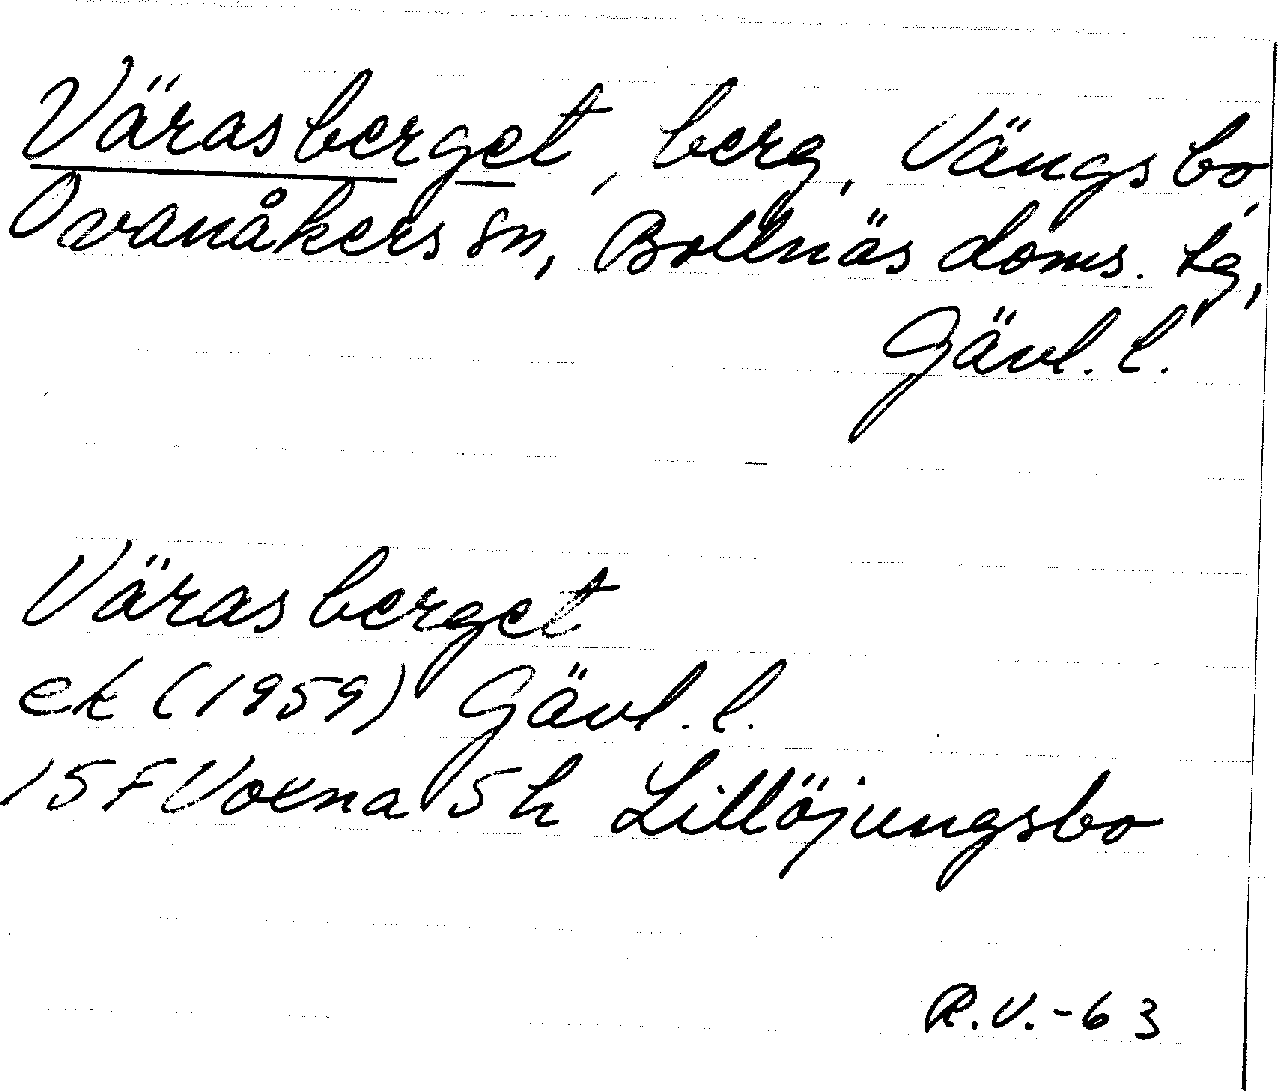 Värasberget, berg, Vängsbo,
Ovanåkers sn, Bollnäs doms. tg,
Gävl. l.
Värasberget
ek (1959) Gävl. l.
15F Voxna 5h Lillöjungsbo
R.V.-63